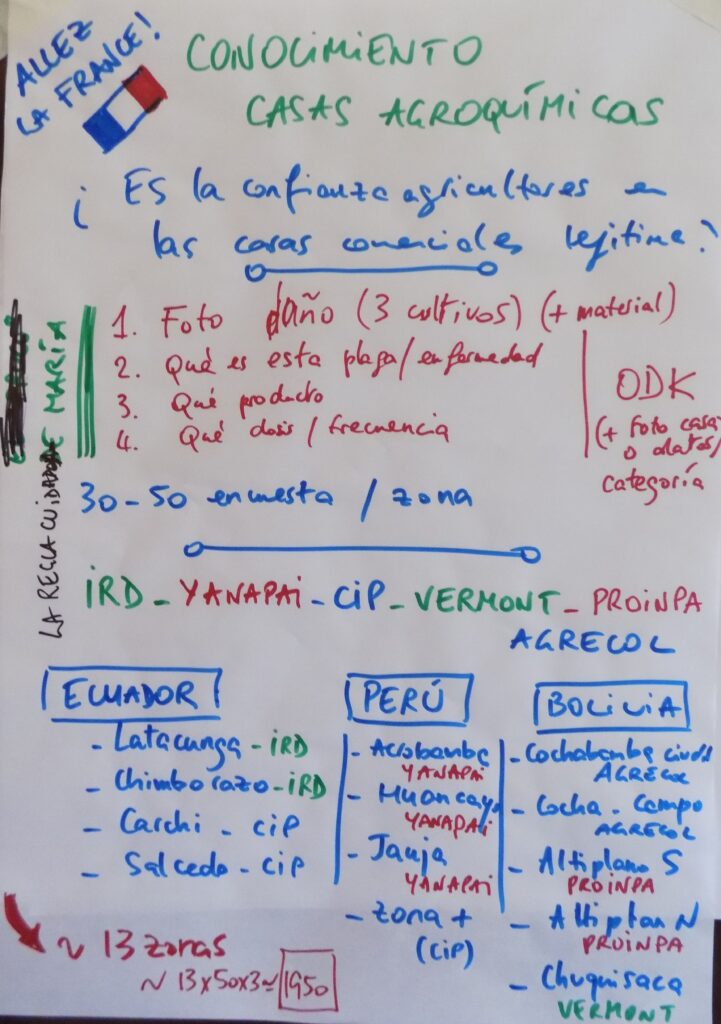 ALLEZ
LA FRANCE!
CONOCIMIENTO
CASAS AGROQUÍMICAS
¿ Es la confianza agricultores en
las casas comerciales legitima?
1. Foto daño (3 cultivos) (+ material)
2. Qué es esta plaga/enfermedad
3. Qué producto
4. Qué dosis / frecuencia
ODK
(+ Foto casa
o datos/
categoría
LA REGLA CUIDADO DE MARÍA
30-50 encuesta / zona
IRD - YANAPAI - CIP - VERMONT - PROINPA
AGRECOL
ECUADOR
- Latacunga - IRD
- Chimborazo - IRD
- Carchi - CIP
- Salcedo - CIP
PERÚ
- Acobamba
YANAPAI
- Huancayo
YANAPAI
- Jauja
YANAPAI
- Zona +
(CIP)
BOLIVIA
- Cochabamba ciudad
AGRECOL
- Cocha. Campo
AGRECOL
- Altiplano S
PROINPA
- Altiplan N
PROINPA
- Chuquisaca
VERMONT
~ 13 zonas
~ 13x50x3 ≃ 1950